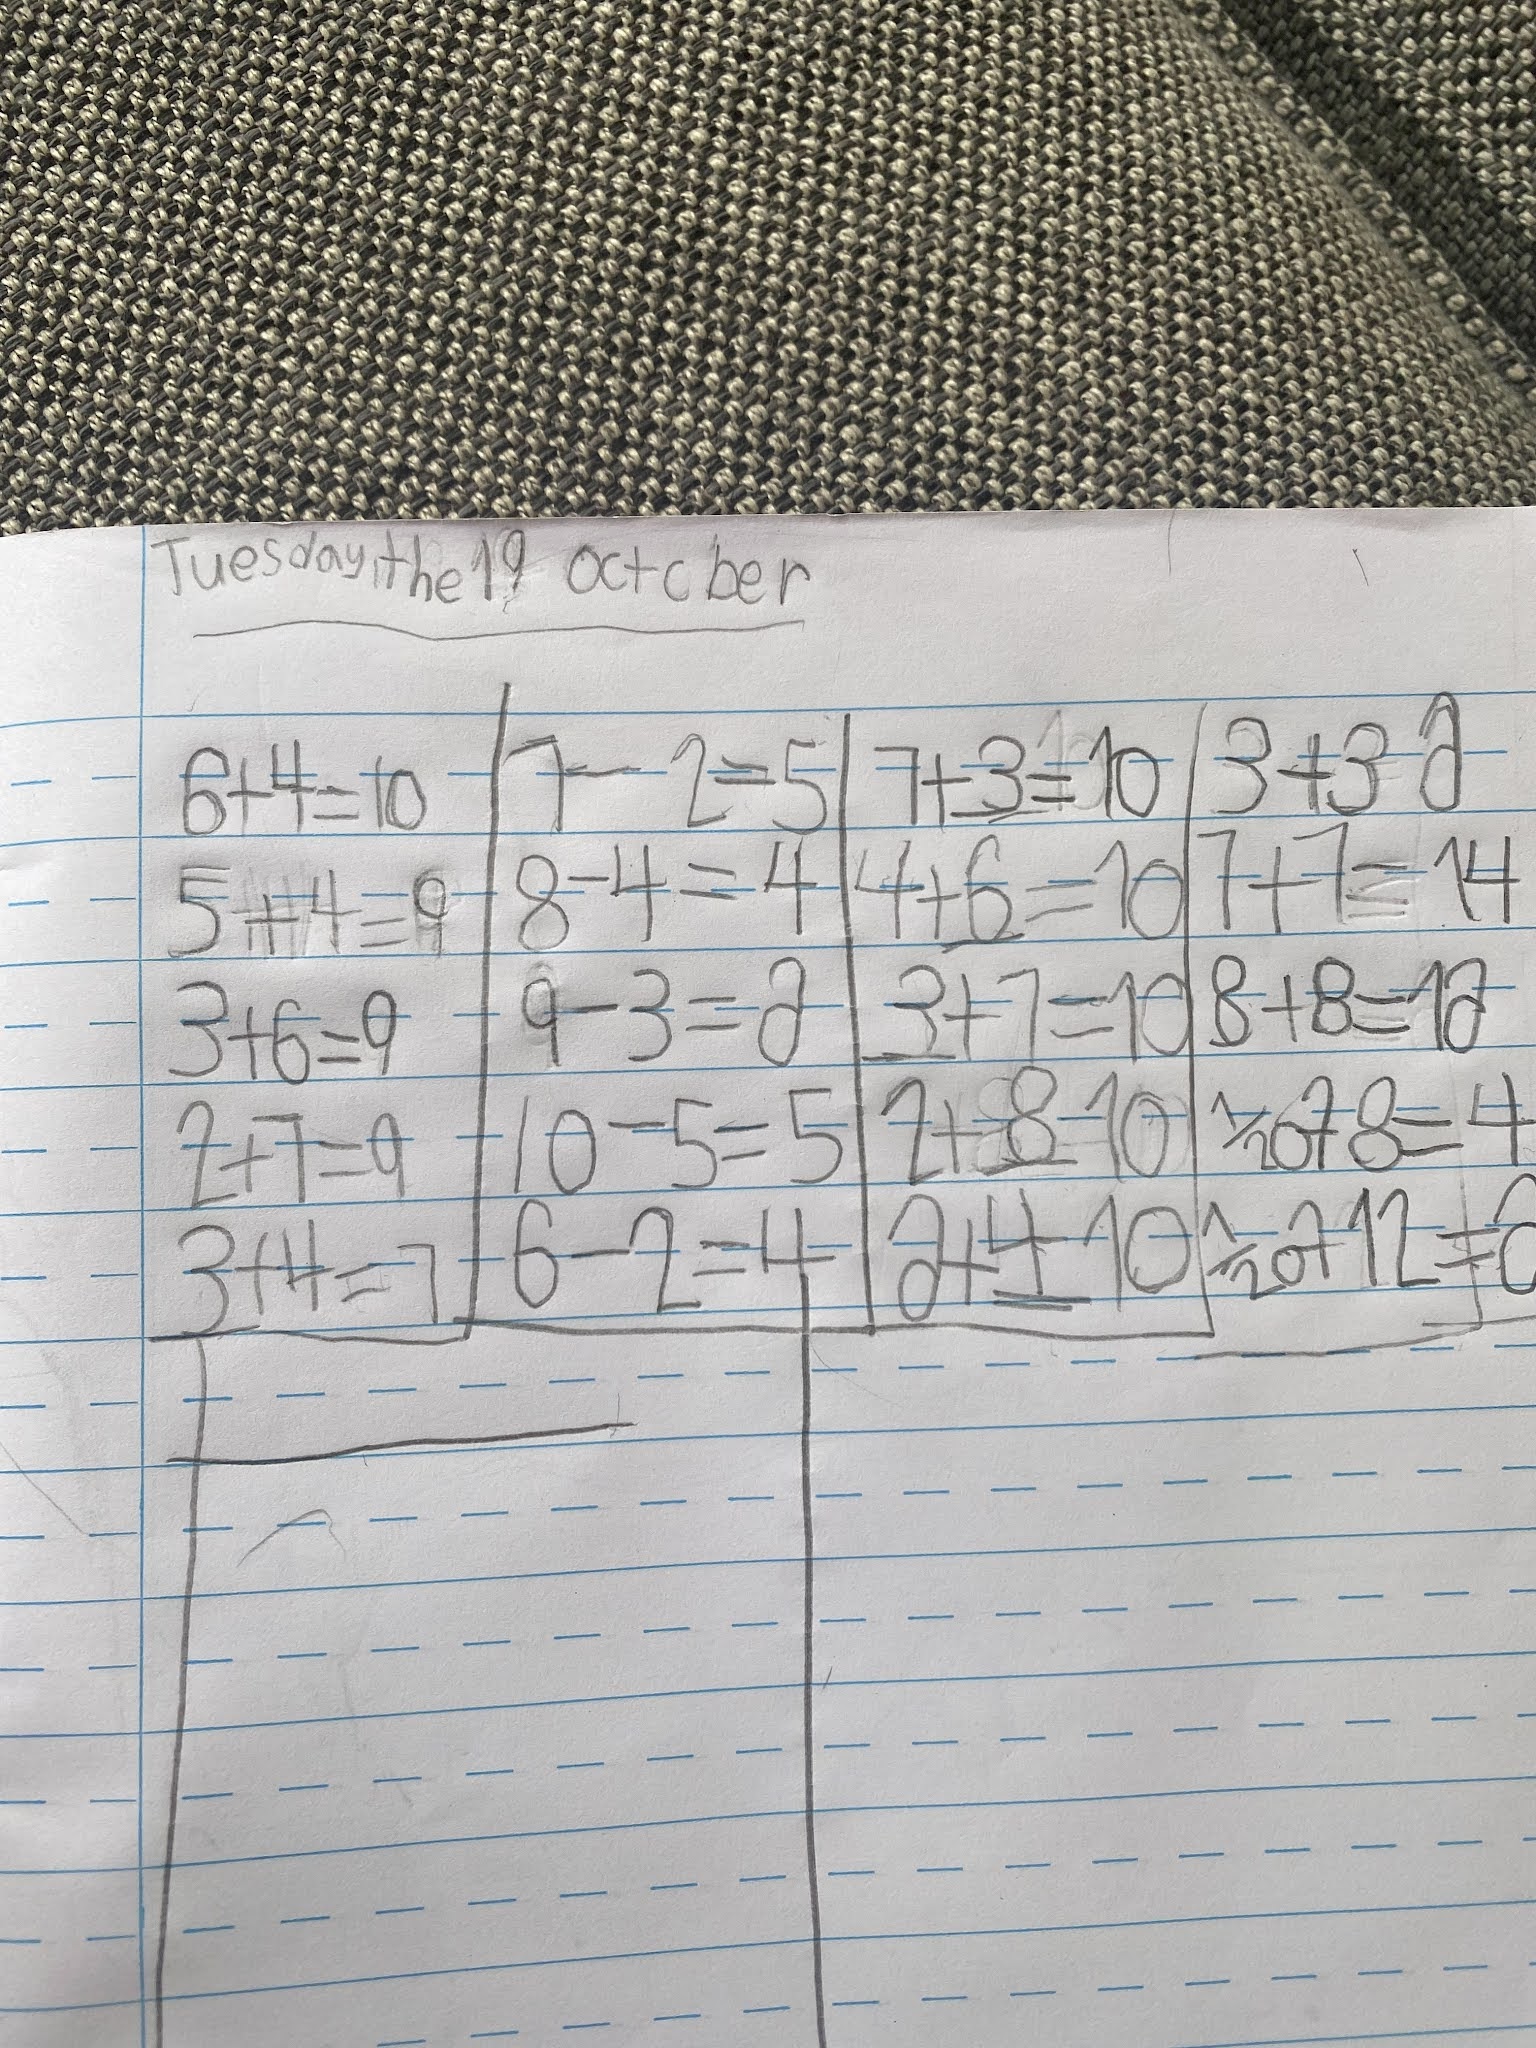 Tuesday, the 19 October
6+4=10 7-2=5 7+3=10 3+3 6
5+4=9 8-4=4 4+6=10 7+7=14
3+6=9 9-3=6 3+7=10 8+8=16
2+7=9 10-5=5 2+8 10 1/2 of 8=4
3+4=7 6-2=4 6+4=10 1/2 of 12=6